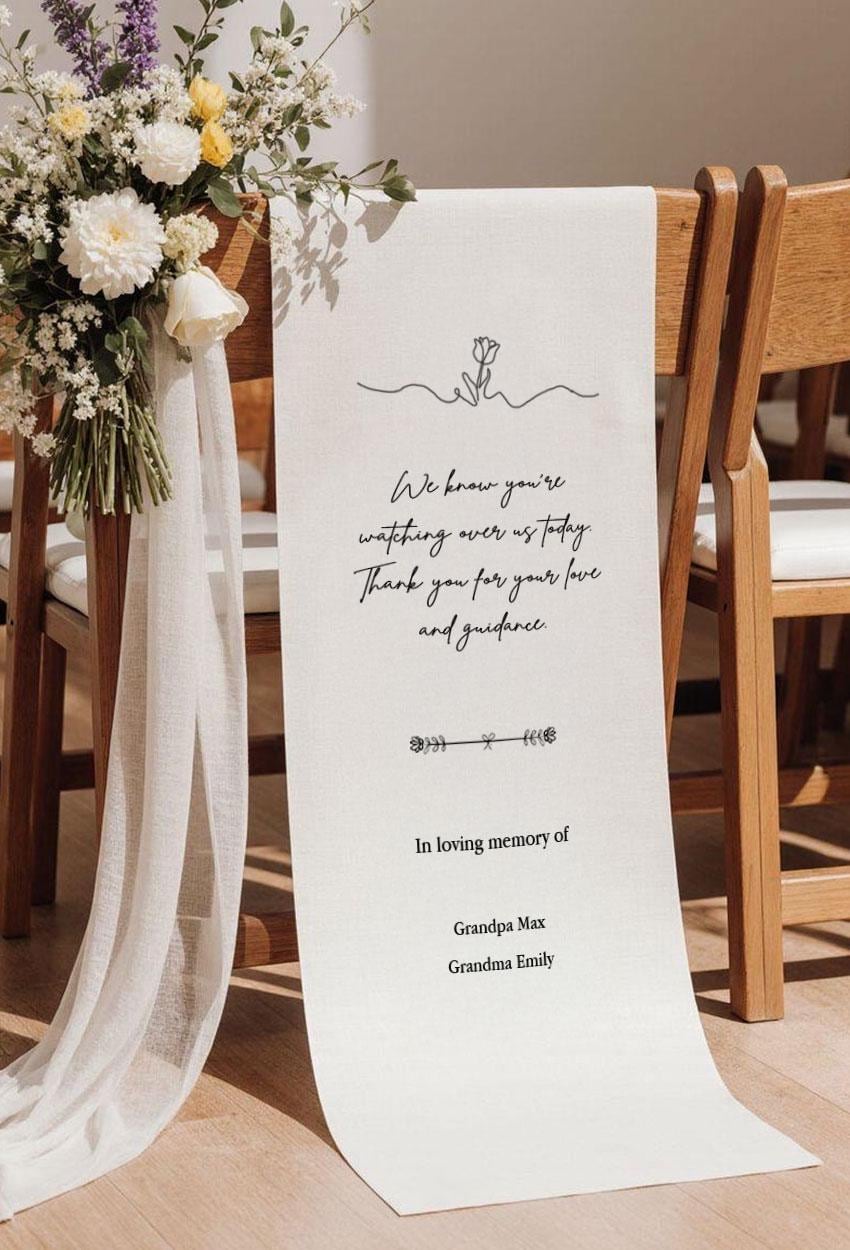 We know you're
watching over us today.
Thank you for your love
and guidance.
In loving memory of
Grandpa Max
Grandma Emily